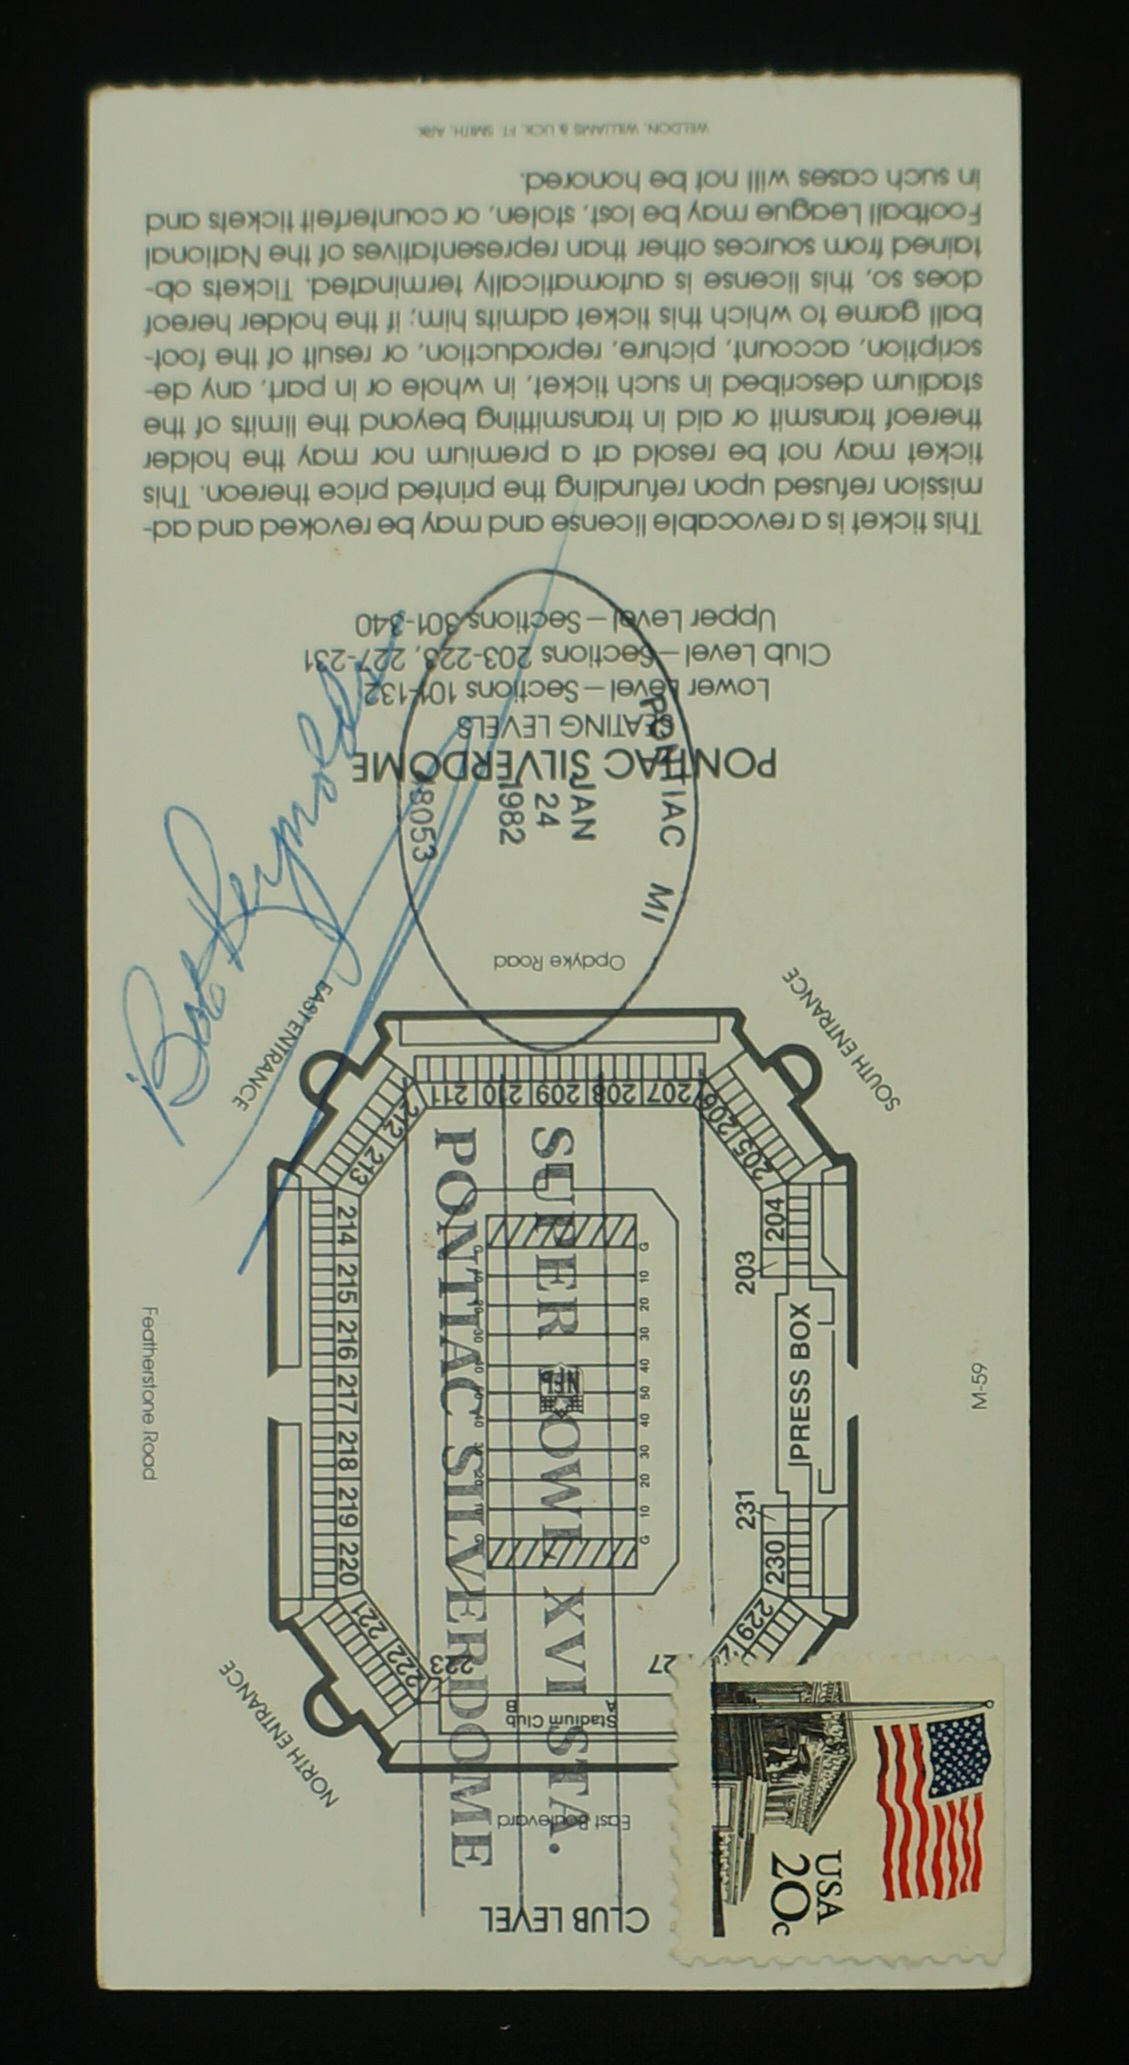 This ticket is a revocable license and may be revoked and ad-
mission refused upon refunding the printed price thereon. This
ticket may not be resold at a premium nor may the holder
thereof transmit or aid in transmitting beyond the limits of the
stadium described in such ticket, in whole or in part, any de-
scription, account, picture, reproduction, or result of the foot-
ball game to which this ticket admits him; if the holder hereof
does so, this license is automatically terminated. Tickets ob-
tained from sources other than representatives of the National
Football League may be lost, stolen, or counterfeit tickets and
in such cases will not be honored.
WELDON, WILLIAMS & LICK, FT. SMITH, ARK.
CLUB LEVEL
East Boulevard
Stadium Club
A
B
NORTH ENTRANCE
SOUTH ENTRANCE
EAST ENTRANCE
Featherstone Road
M-59
Opdyke Road
PRESS BOX
203
204
205
206
207
208
209
210
211
212
213
214
215
216
217
218
219
220
221
222
223
27
229
230
231
G 10 20 30 40 50 40 30 20 10 G
G 10 20 30 40 50 40 30 20 10 G
NFL
PONTIAC SILVERDOME
SEATING LEVELS
Lower Level—Sections 101-132
Club Level—Sections 203-223, 227-231
Upper Level—Sections 301-340
PONTIAC MI
JAN
24
1982
48053
SUPER BOWL XVI STA.
PONTIAC SILVERDOME
Bob Reynolds
USA
20c